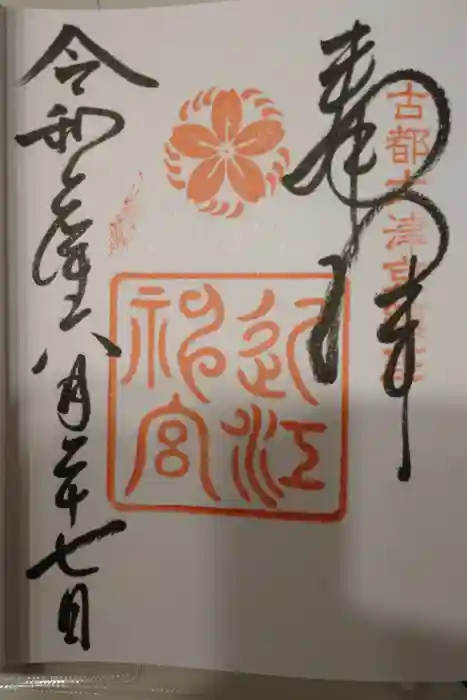 古都大津
奉拝
近江
神宮
令和元年八月二十七日